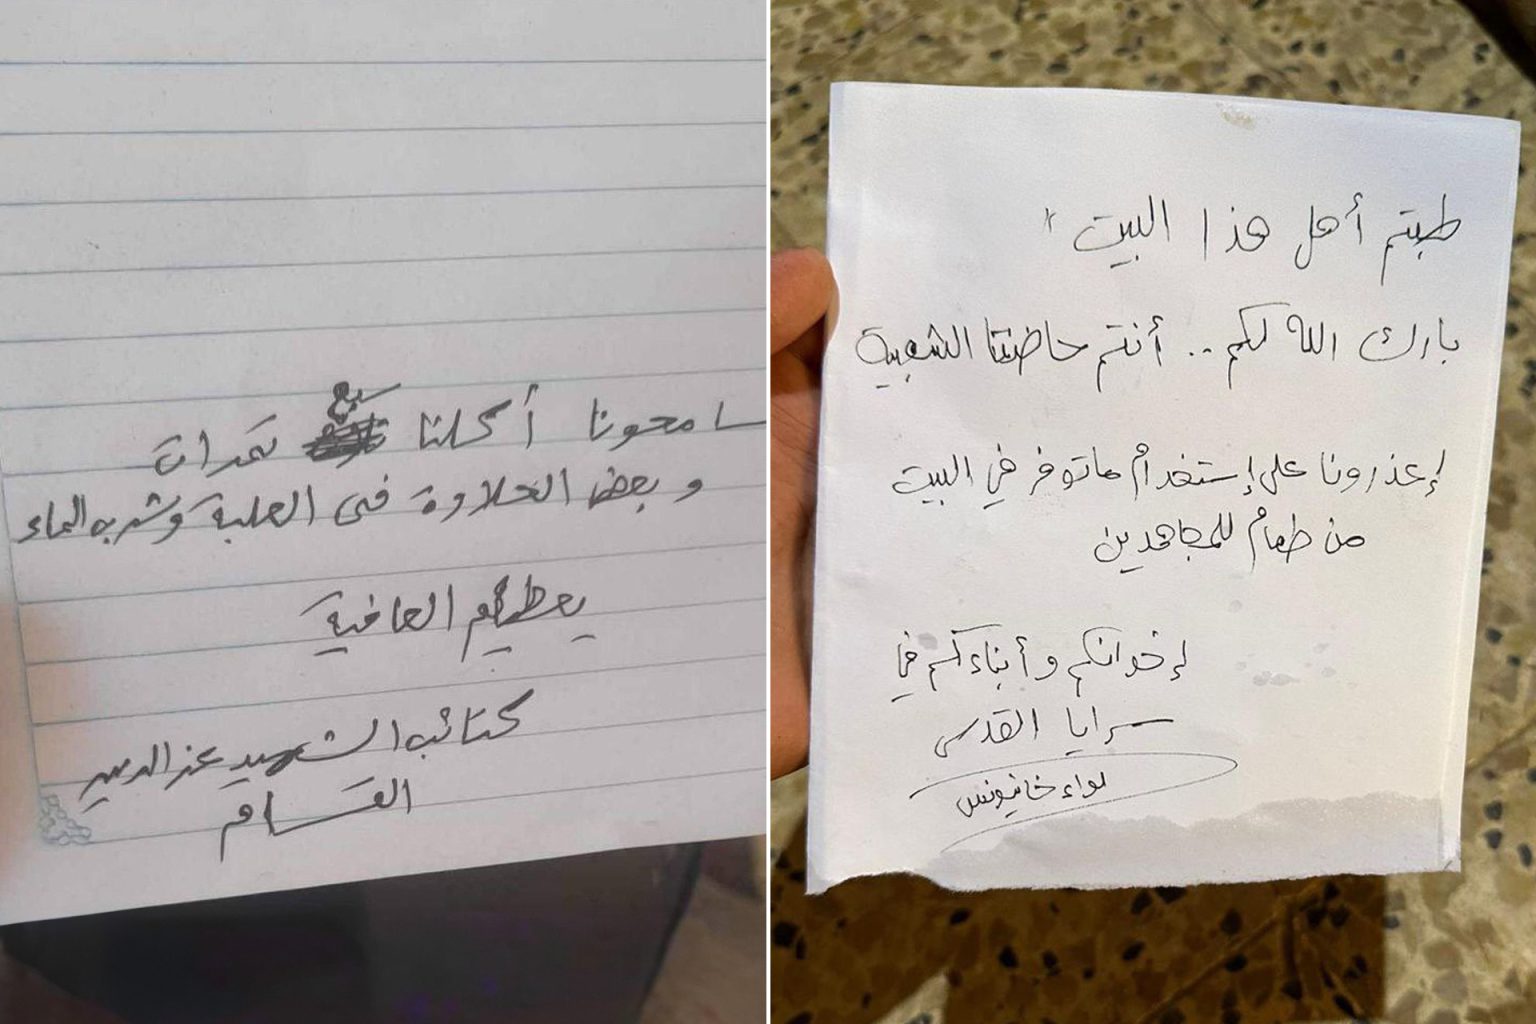 سامحونا أكلنا سبع تمرات
و بعض الحلاوة في العلبة وشربه الماء
يعطيكم العافية
كتائب الشهيد عز الدين
القسام
طبتم أهل هذا البيت
بارك الله لكم .. أنتم حاضنتنا الشعبية
إعذرونا على إستخدام ماتوفر في البيت
من طعام للمجاهدين
إخوانكم وأبناءكم في
سرايا القدس
لواء خانيونس